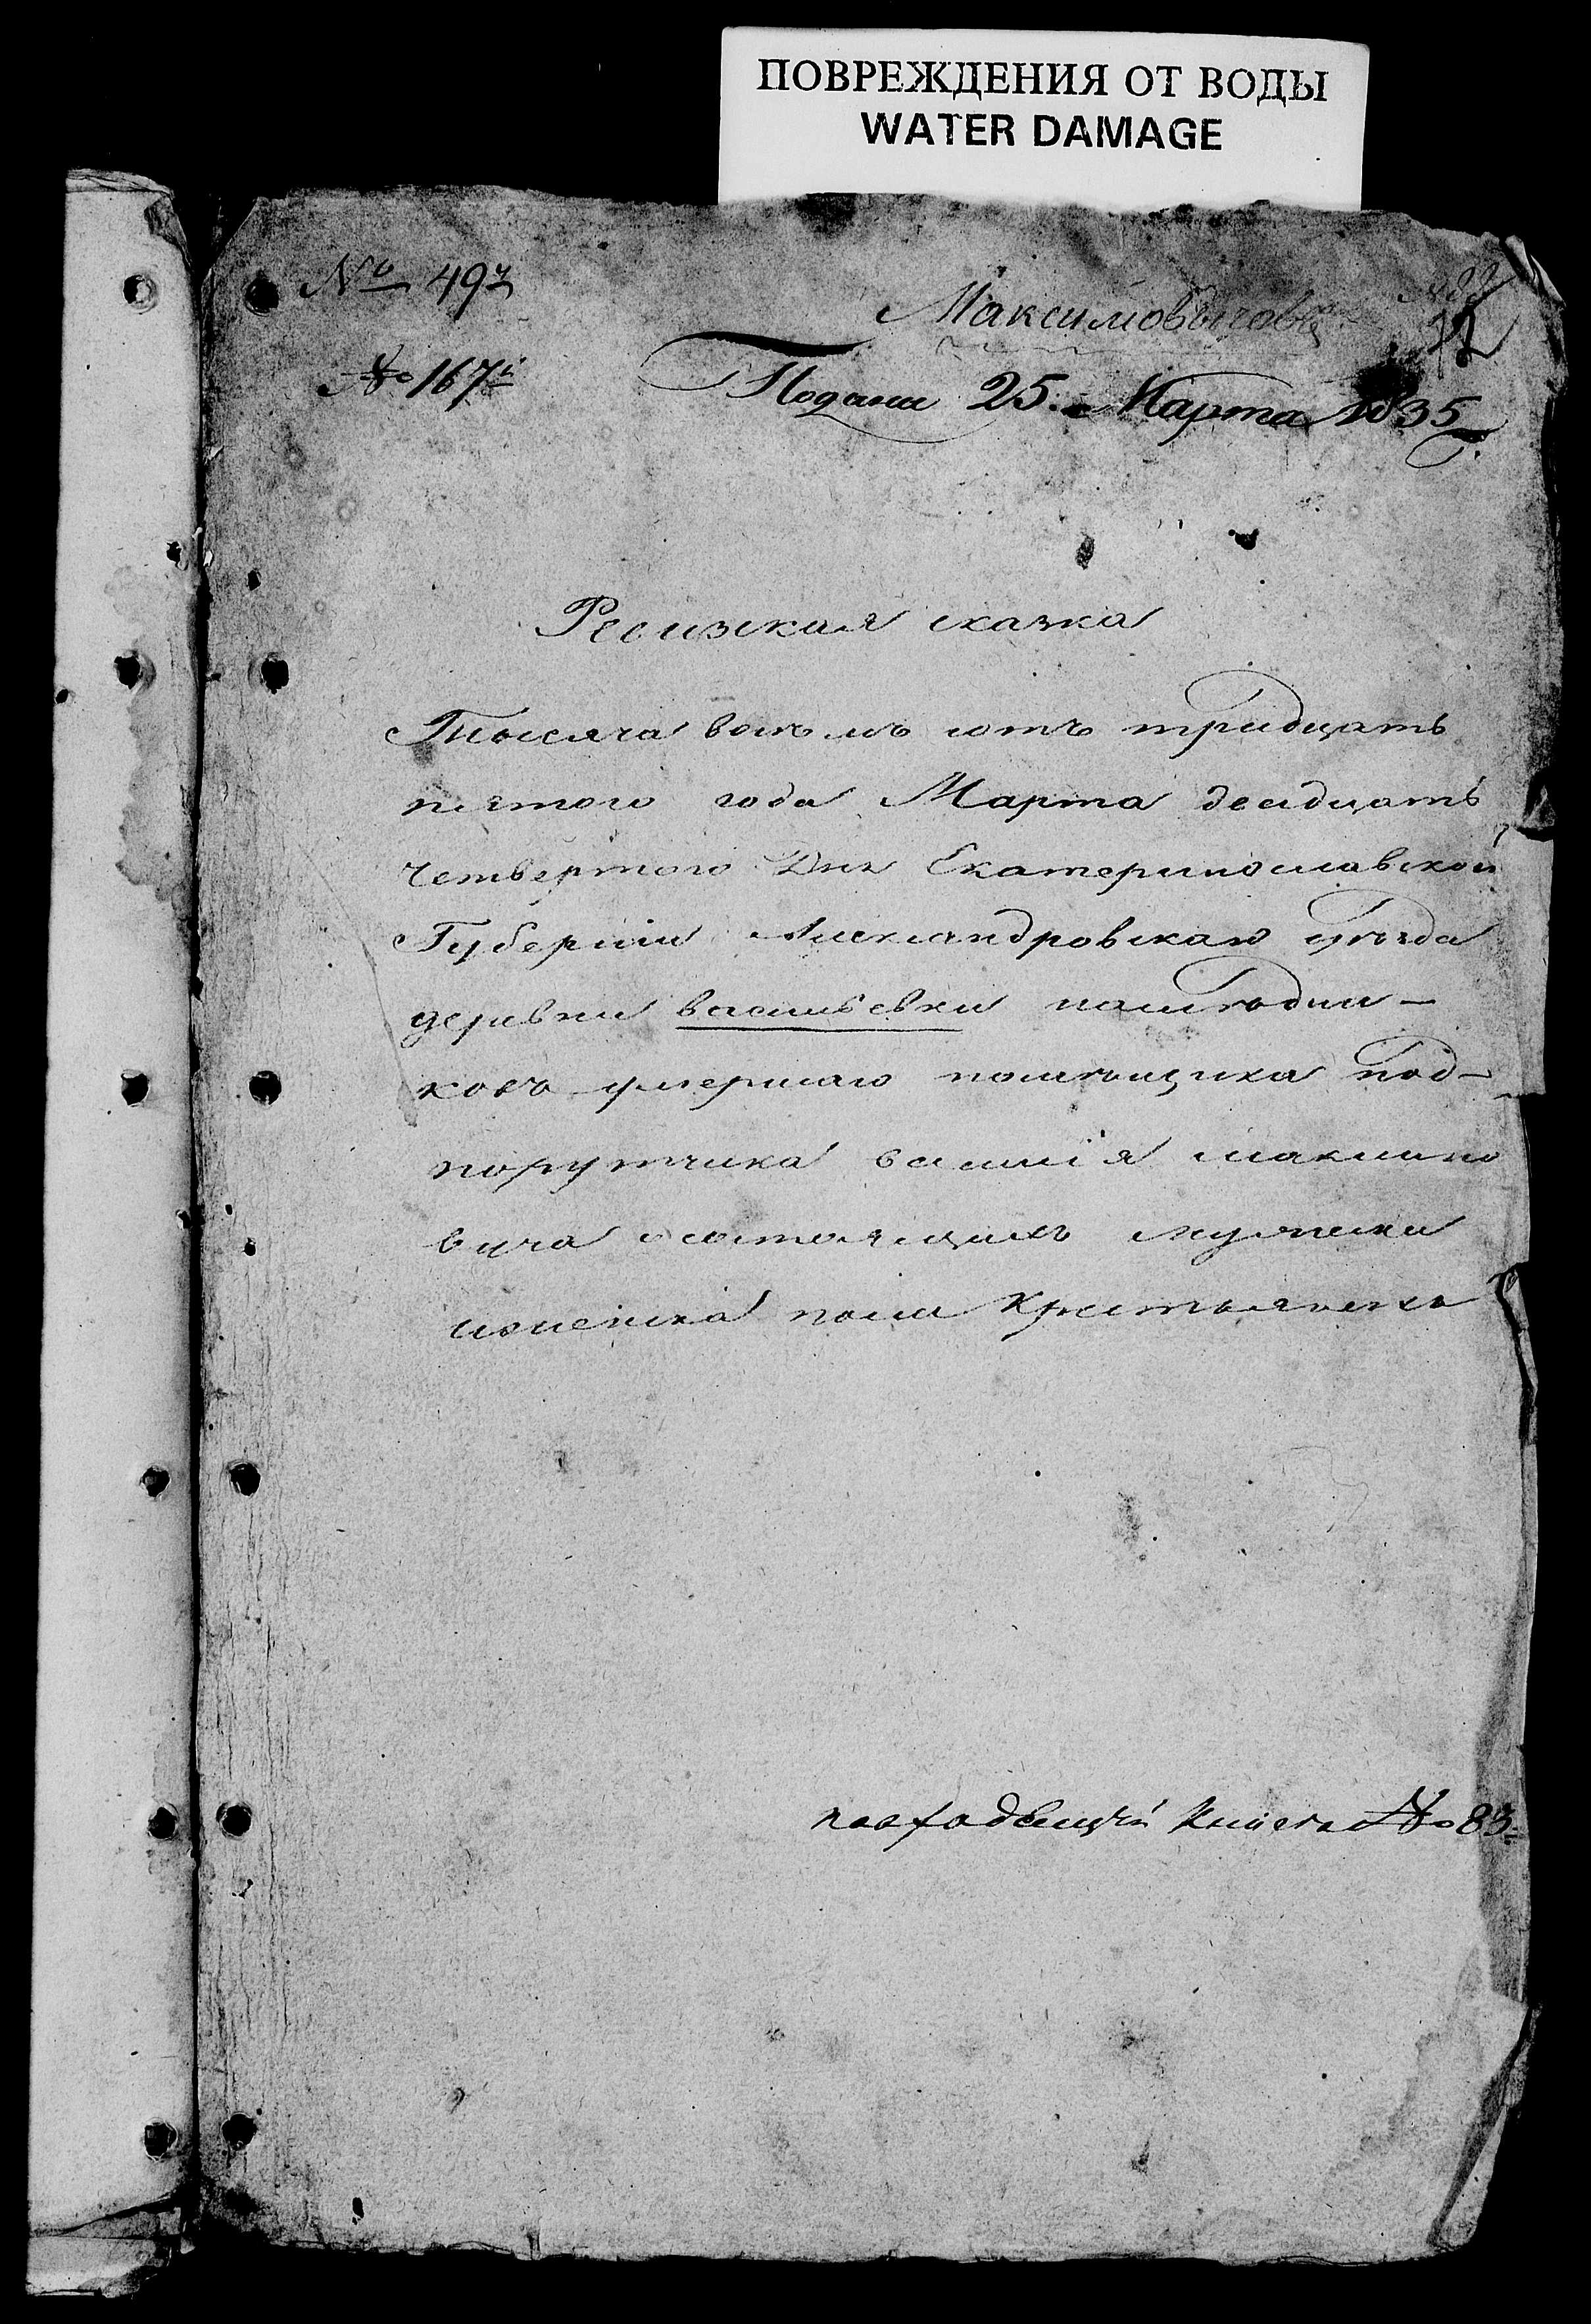 ПОВРЕЖДЕНИЯ ОТ ВОДЫ
WATER DAMAGE
№ 497
Максимовичовъ
№ 167й
Подана 25. Марта 1835 г.
Ревизкая сказка
Тысяча восъмъ сотъ тридцать
пятого года Марта двадцать
четвертого Дня Екатеринославской
Губернии Александровскаго уѣзда
деревни васильевки наслѣдни-
ковъ умершаго помѣщика под-
порутчика василïя максимо
вича осостоящихъ мужеска
иженска пола Крестьянехъ
книга № 83